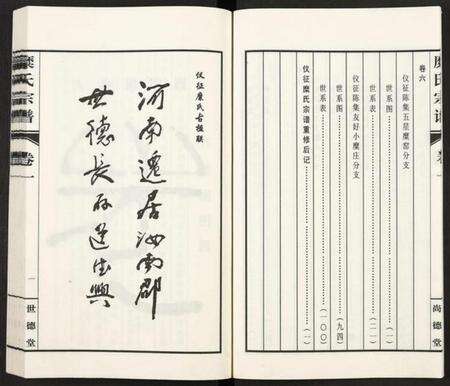 糜氏宗谱
卷一
尚德堂
卷六
仪征陈集五星糜窑分支
世系图……(一)
世系表……(二一)
仪征陈集友好小糜庄分支
世系图……(九四)
世系表……(一〇〇)
仪征糜氏宗谱重修后记……(一)
仪征糜氏古楹联
河南遷居汝南郡
世德長存
糜氏宗谱
卷一
一
世德堂